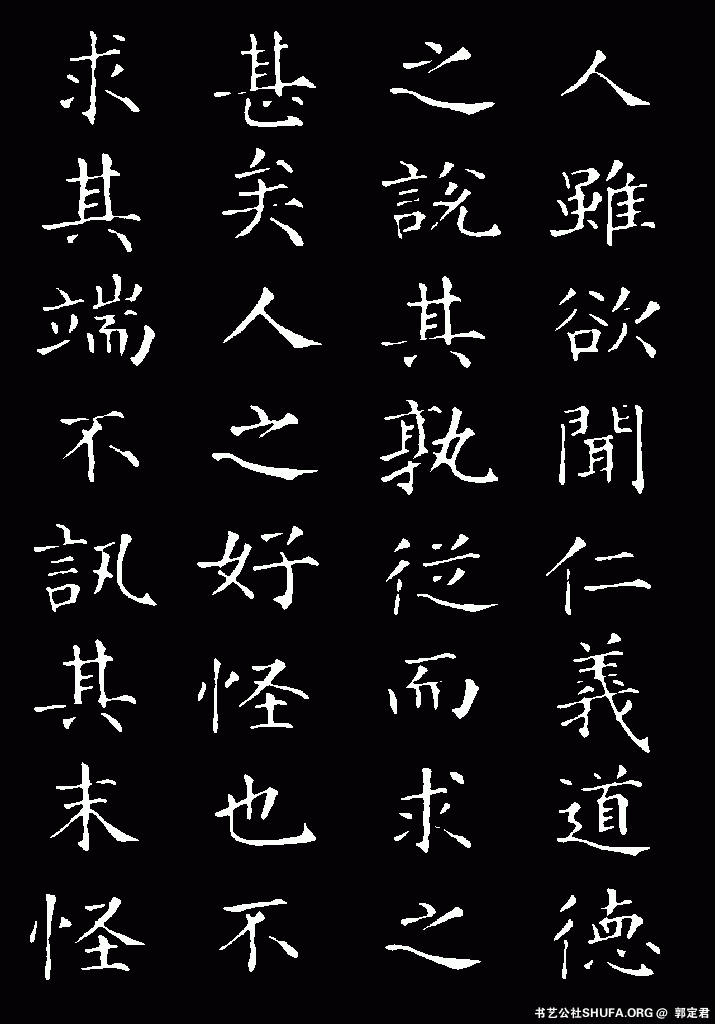 人雖欲聞仁義道德
之說其孰從而求之
甚矣人之好怪也不
求其端不訊其末怪
书艺公社SHUFA.ORG @ 郭定君